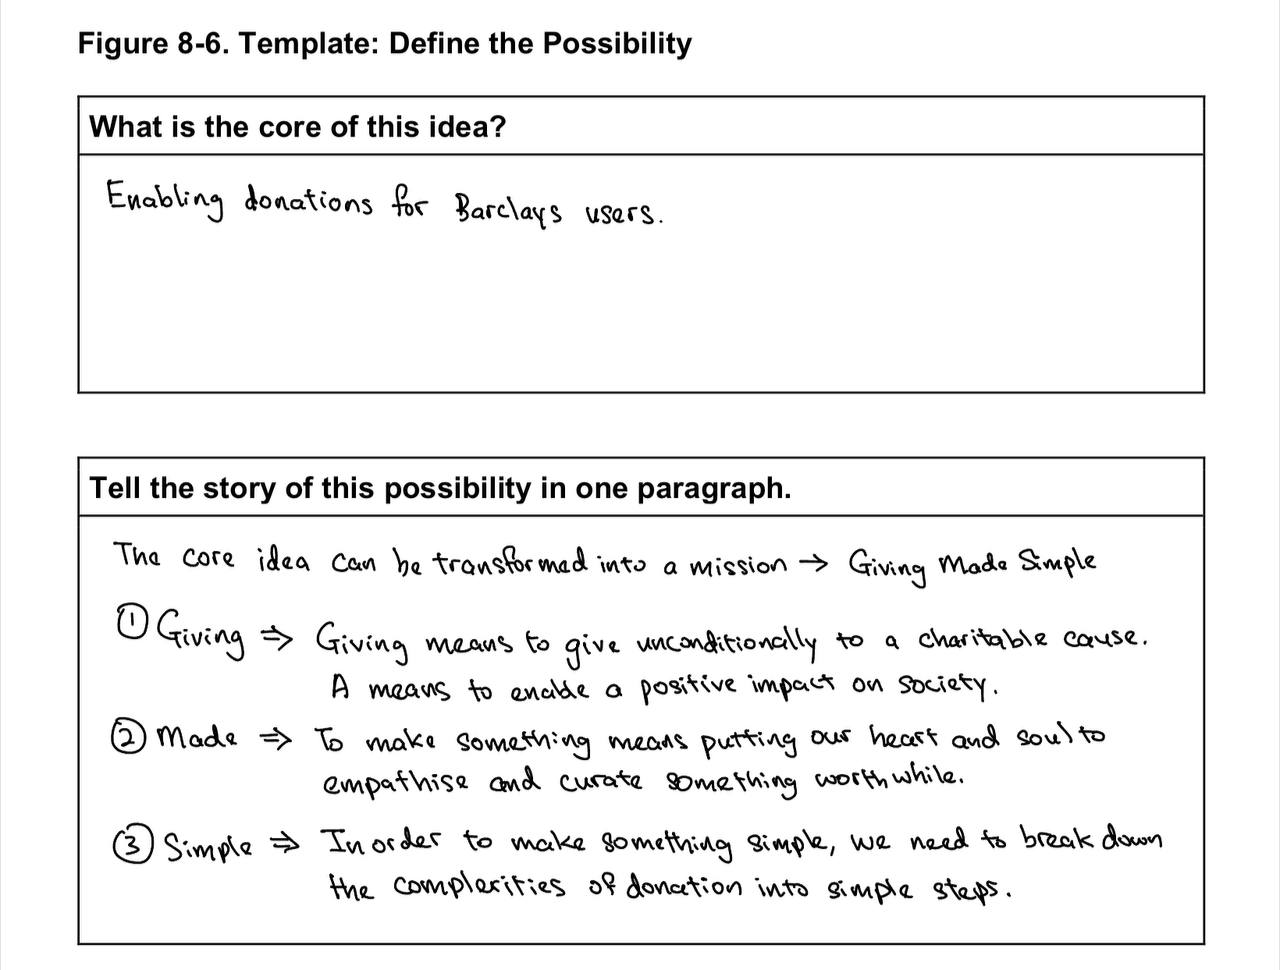 Figure 8-6. Template: Define the Possibility
What is the core of this idea?
Enabling donations for Barclays users.
Tell the story of this possibility in one paragraph.
The core idea can be transformed into a mission → Giving Made Simple
① Giving ⇒ Giving means to give unconditionally to a charitable cause.
A means to enable a positive impact on society.
② Made ⇒ To make something means putting our heart and soul to
empathise and curate something worthwhile.
③ Simple ⇒ In order to make something simple, we need to break down
the complexities of donation into simple steps.